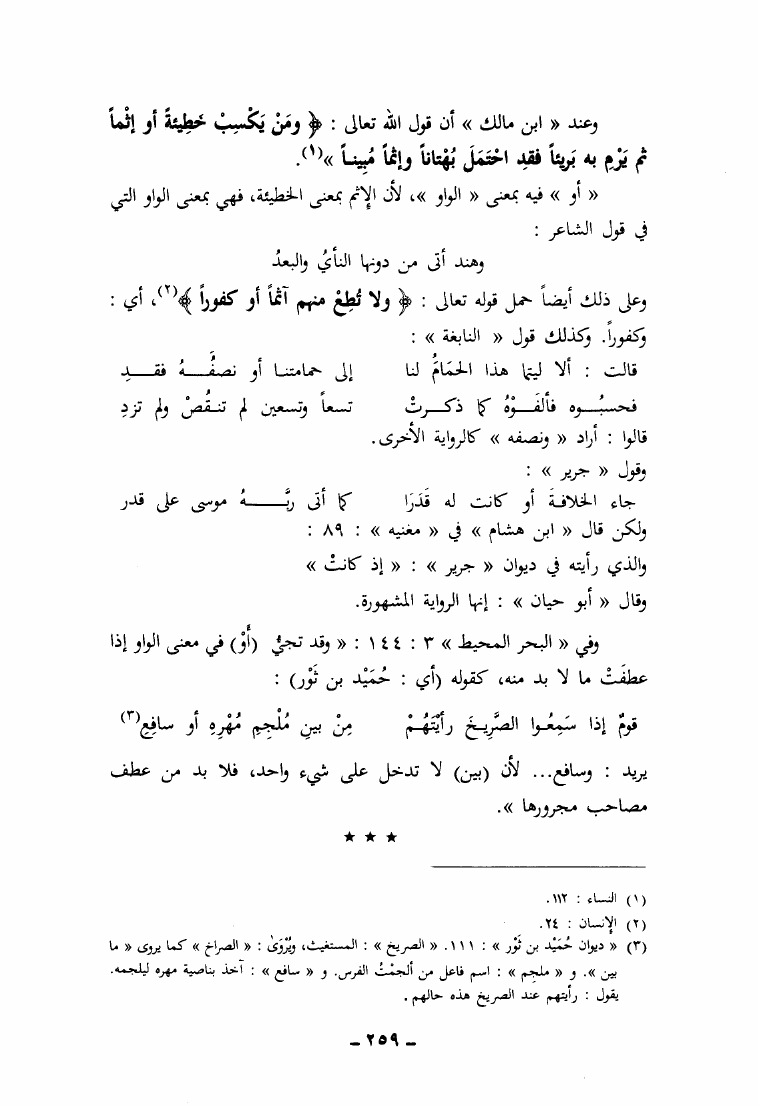 وعند « ابن مالك » أن قول الله تعالى : ﴿ ومَنْ يَكْسِبْ خَطِيئةً أو إثْماً
ثم يَرْمِ به بَريئاً فقد احْتَمَلَ بُهْتاناً وإثْماً مُبِيناً »(١).
« أو » فيه بمعنى « الواو »، لأن الإثم بمعنى الخطيئة، فهي بمعنى الواو التي
في قول الشاعر :
وهند أتى من دونها النأيُ والبعدُ
وعلى ذلك أيضاً حمل قوله تعالى : ﴿ ولا تُطِعْ منهم آثماً أو كفوراً ﴾(٢)، أي :
وكفوراً. وكذلك قول « النابغة » :
قالت : ألا ليتما هذا الحَمَامُ لنا إلى حمامتنا أو نصفُهُ فقدِ
فحسبُوه فألفَوْهُ كما ذكرتْ تسعاً وتسعين لم تنقُصْ ولم تزدِ
قالوا : أراد « ونصفه » كالرواية الأخرى.
وقول « جرير » :
جاء الخلافة أو كانت له قَدَرَا كما أتى ربَّهُ موسى على قدر
ولكن قال « ابن هشام » في « مغنيه » : ٨٩ :
والذي رأيته في ديوان « جرير » : « إذ كانتْ »
وقال « أبو حيان » : إنها الرواية المشهورة.
وفي « البحر المحيط » ٣ : ١٤٤ : « وقد تجيُ (أَوْ) في معنى الواو إذا
عطفَتْ ما لا بد منه، كقوله (أي : حُمَيْد بن ثَوْر) :
قومٌ إذا سَمِعُوا الصَّرِيخَ رأيْتَهُمْ مِنْ بينِ مُلْجِمِ مُهْرِهِ أو سافِعِ(٣)
يريد : وسافع... لأن (بين) لا تدخل على شيء واحد، فلا بد من عطف
مصاحب مجرورها ».
★ ★ ★
(١) النساء : ١١٢.
(٢) الإنسان : ٢٤.
(٣) « ديوان حُمَيْد بن ثَوْر » : ١١١. « الصريخ » : المستغيث، ويُرْوَىٰ : « الصراخ » كما يروى « ما
بين ». و « ملجم » : اسم فاعل من ألجمْتُ الفرس. و « سافع » : آخذ بناصية مهره ليلجمه.
يقول : رأيتهم عند الصريخ هذه حالهم.
ـ ٢٥٩ ـ